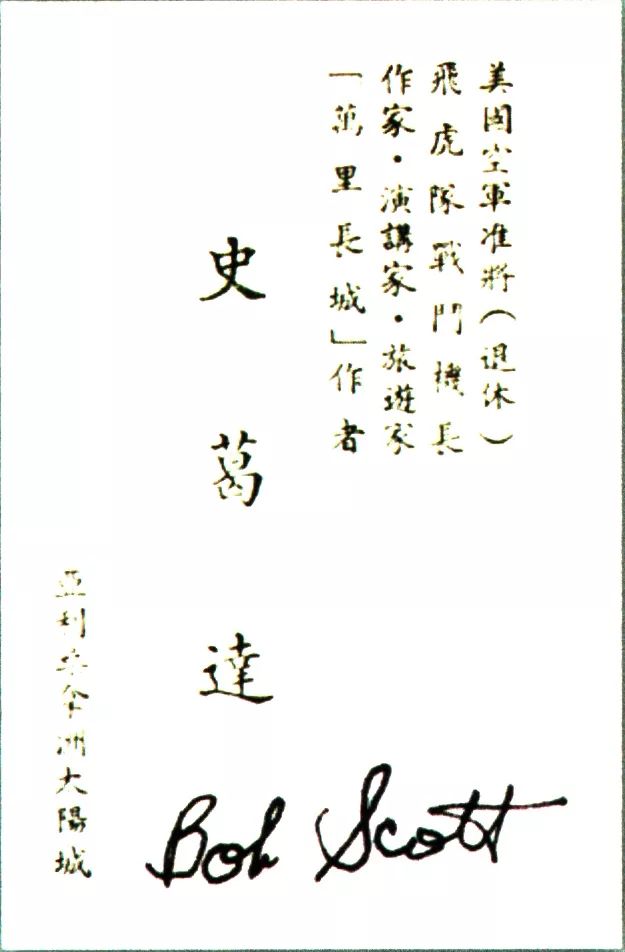 美國空軍准將（退休）
飛虎隊戰鬥機長
作家・演講家・旅遊家
「萬里長城」作者
史葛達
亞利桑拿洲大陽城
Bob Scott